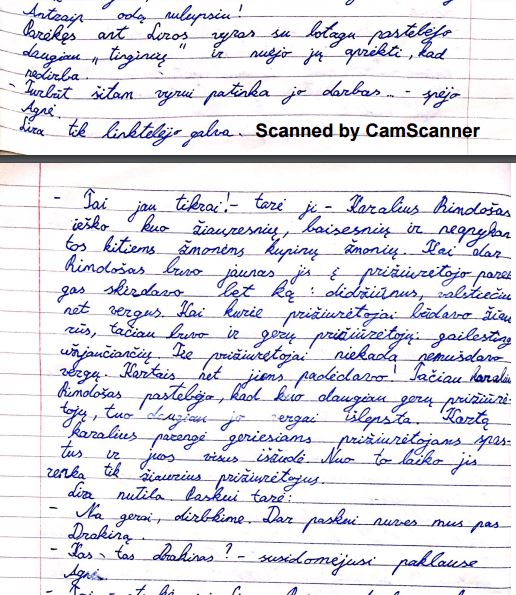 Antraip odą nulupsiu!
Parėkęs ant Liros vyras su botagu pastebėjo
daugiau „tinginių" ir nuėjo jų aprėkti, kad
nedirba.
- Turbūt šitam vyrui patinka jo darbas... - spėjo
Agnė.
Lira tik linktelėjo galva.
Scanned by CamScanner
- Tai jau tikrai! - tarė ji - Karalius Rindošas
ieško kuo žiauresnių, baisesnių ir neapykan
tos kitiems žmonėms kupinų žmonių. Kai dar
Rindošas buvo jaunas jis į prižiūrėtojo parei
gas skirdavo bet ką: didžiūnus, valstiečiu
net vergus. Kai kurie prižiūrėtojai būdavo žiau
rūs, tačiau buvo ir gerų prižiūrėtojų: gailesting
užjaučiančių. Tie prižiūrėtojai niekada nemušdavo
vergų. Kartais net jiems padėdavo! Tačiau karalius
Rindošas pastebėjo, kad kuo daugiau gerų prižiūrė-
tojų, tuo daugiau jo vergai išlepsta. Kartą
karalius parengė geriesiams prižiūrėtojams spąs-
tus ir juos visus išžudė. Nuo to laiko jis
renka tik žiaurius prižiūrėtojus.
Lira nutilo. Paskui tarė:
- Na gerai, dirbkime. Dar paskui nuves mus pas
Drakiną.
- Kas tas Drakinas? - susidomėjusi paklausė
Agnė.